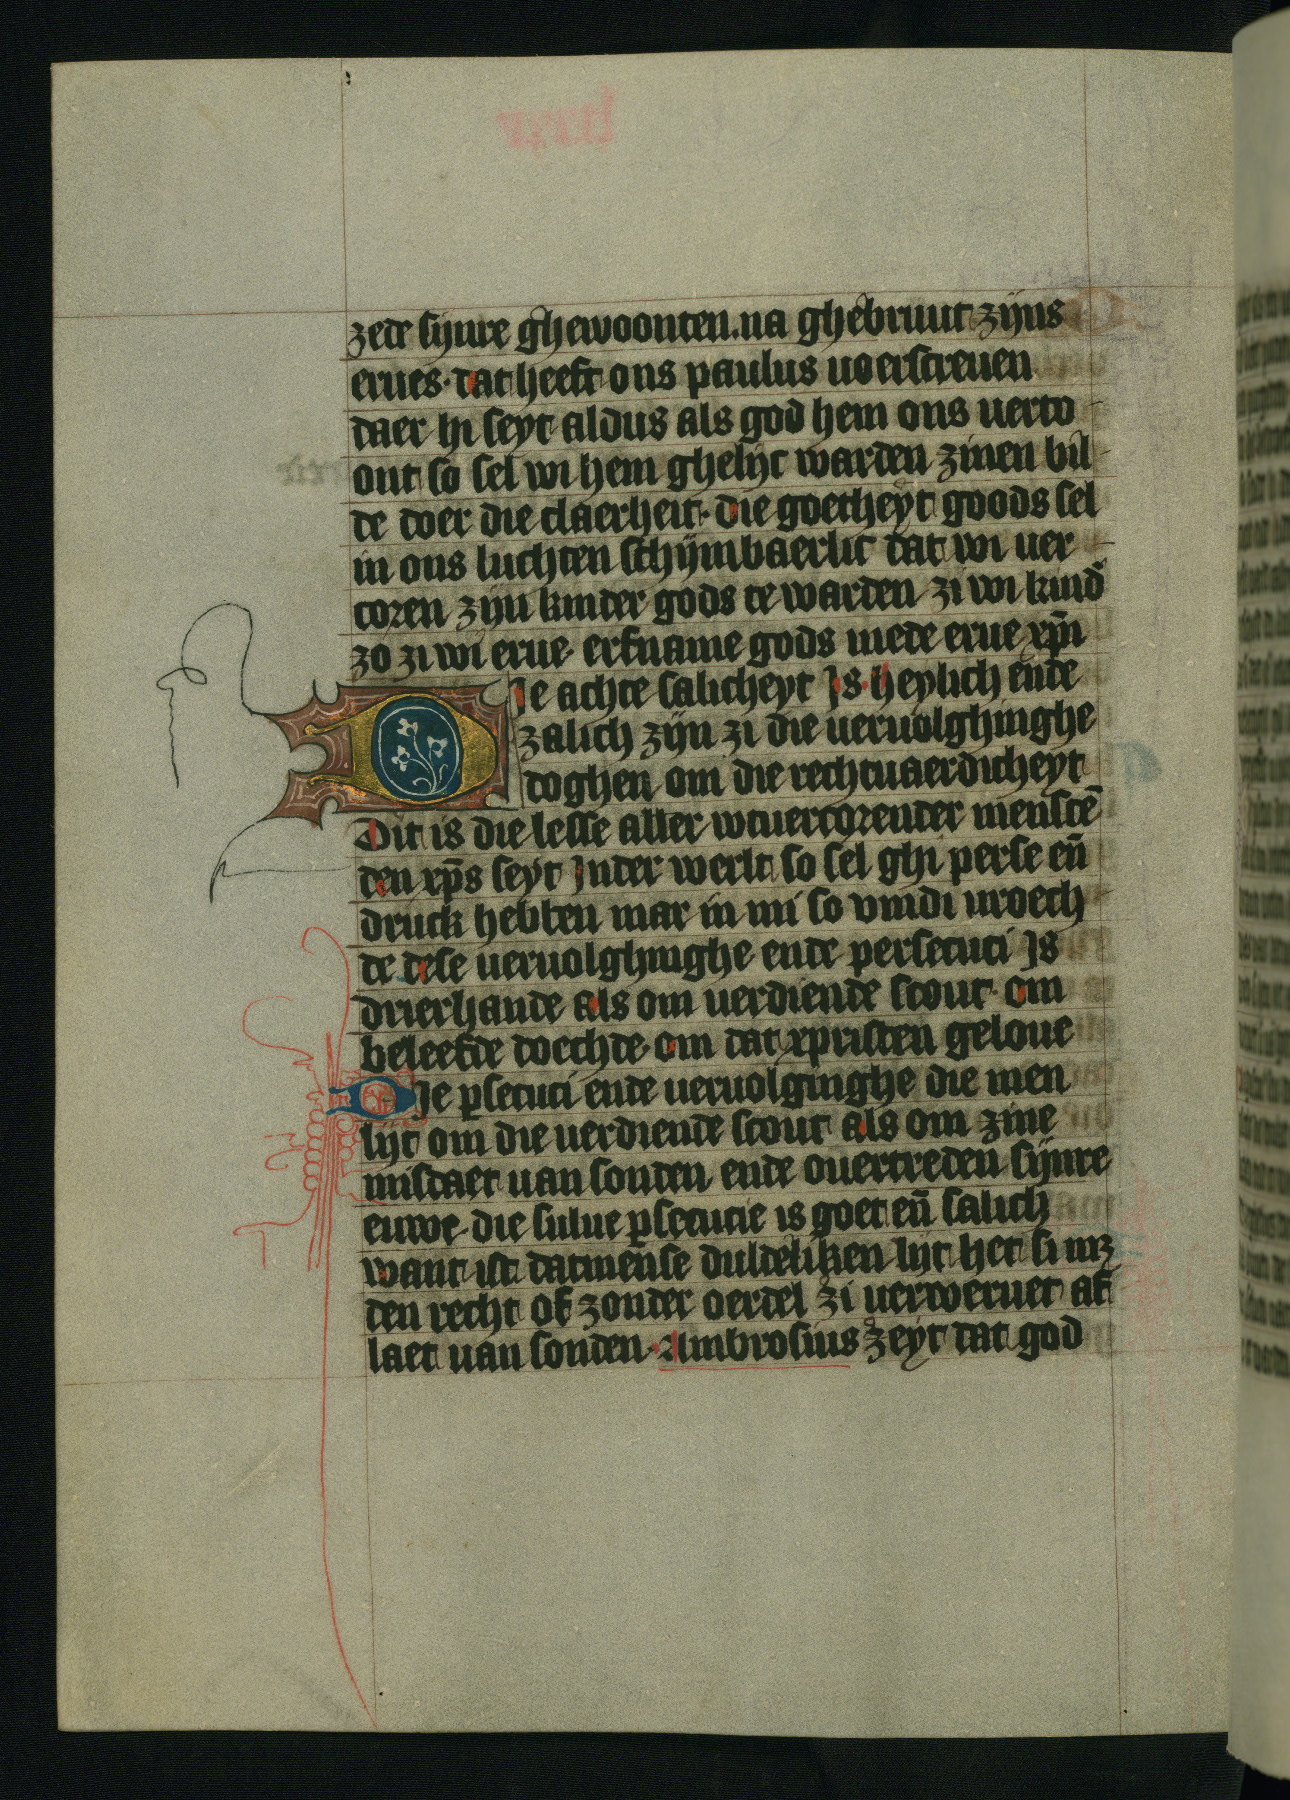 zede sijnre ghewoonten. na ghebruut zijns
erues · dat heeft ons paulus uoerscreuen
daer hi seyt aldus als god hem ons uerto
ont so sel wi hem ghelijc warden zinen bil
de doer die claerheit · die goetheyt goods sel
in ons luchten schijmbaerlic dat wi uer
coren zijn kinder gods te warden zi wi kind̄
zo zi wi erue · erfname gods mede erue xp̄i
Die achte salicheyt Js · heylich ende
zalich zijn zi die ueruolghinghe
doghen om die rechtuaerdicheyt
Dit is die lesse alter wtuercorenter menscē
den xp̄s seyt Jnder werlt so sel ghi perse en̄
druck hebben mar in mi so vindi uroech
de dese ueruolghinghe ende persecuci Js
drierhande als om uerdiende scout · om
beleefde doechde · om dat xpristen geloue
DJe ꝑsecuci ende ueruolginghe die men
lijt om die uerdiende scout als om zine
misdaet uan sonden ende ouertreden sijnre
euwe · die sulue ꝑsecucie is goet en̄ salich
want ist datmense duldeliken lijt het si mz
den recht of zonder oerdel zi uerweruet af
laet uan sonden · Ambrosius zeyt dat god